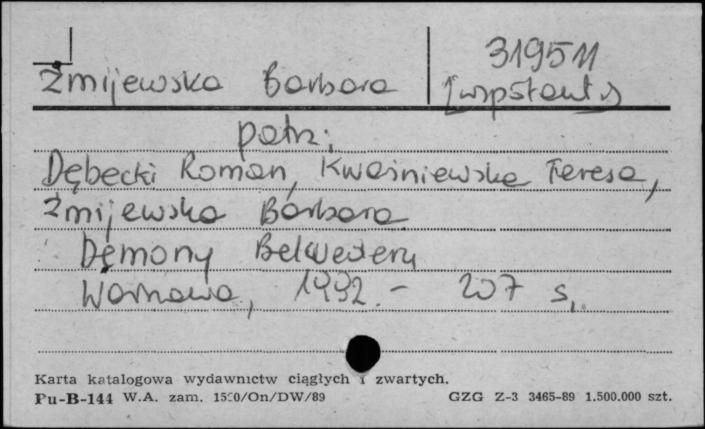 319511
Żmijewska Barbara [współaut.]
patrz:
Dębecki Roman, Kwaśniewska Teresa,
Żmijewska Barbara
Demony Belwederu
Warszawa, 1992. - 207 s.
Karta katalogowa wydawnictw ciągłych i zwartych.
Pu-B-144 W.A. zam. 1500/On/DW/89 GZG Z-3 3465-89 1.500.000 szt.